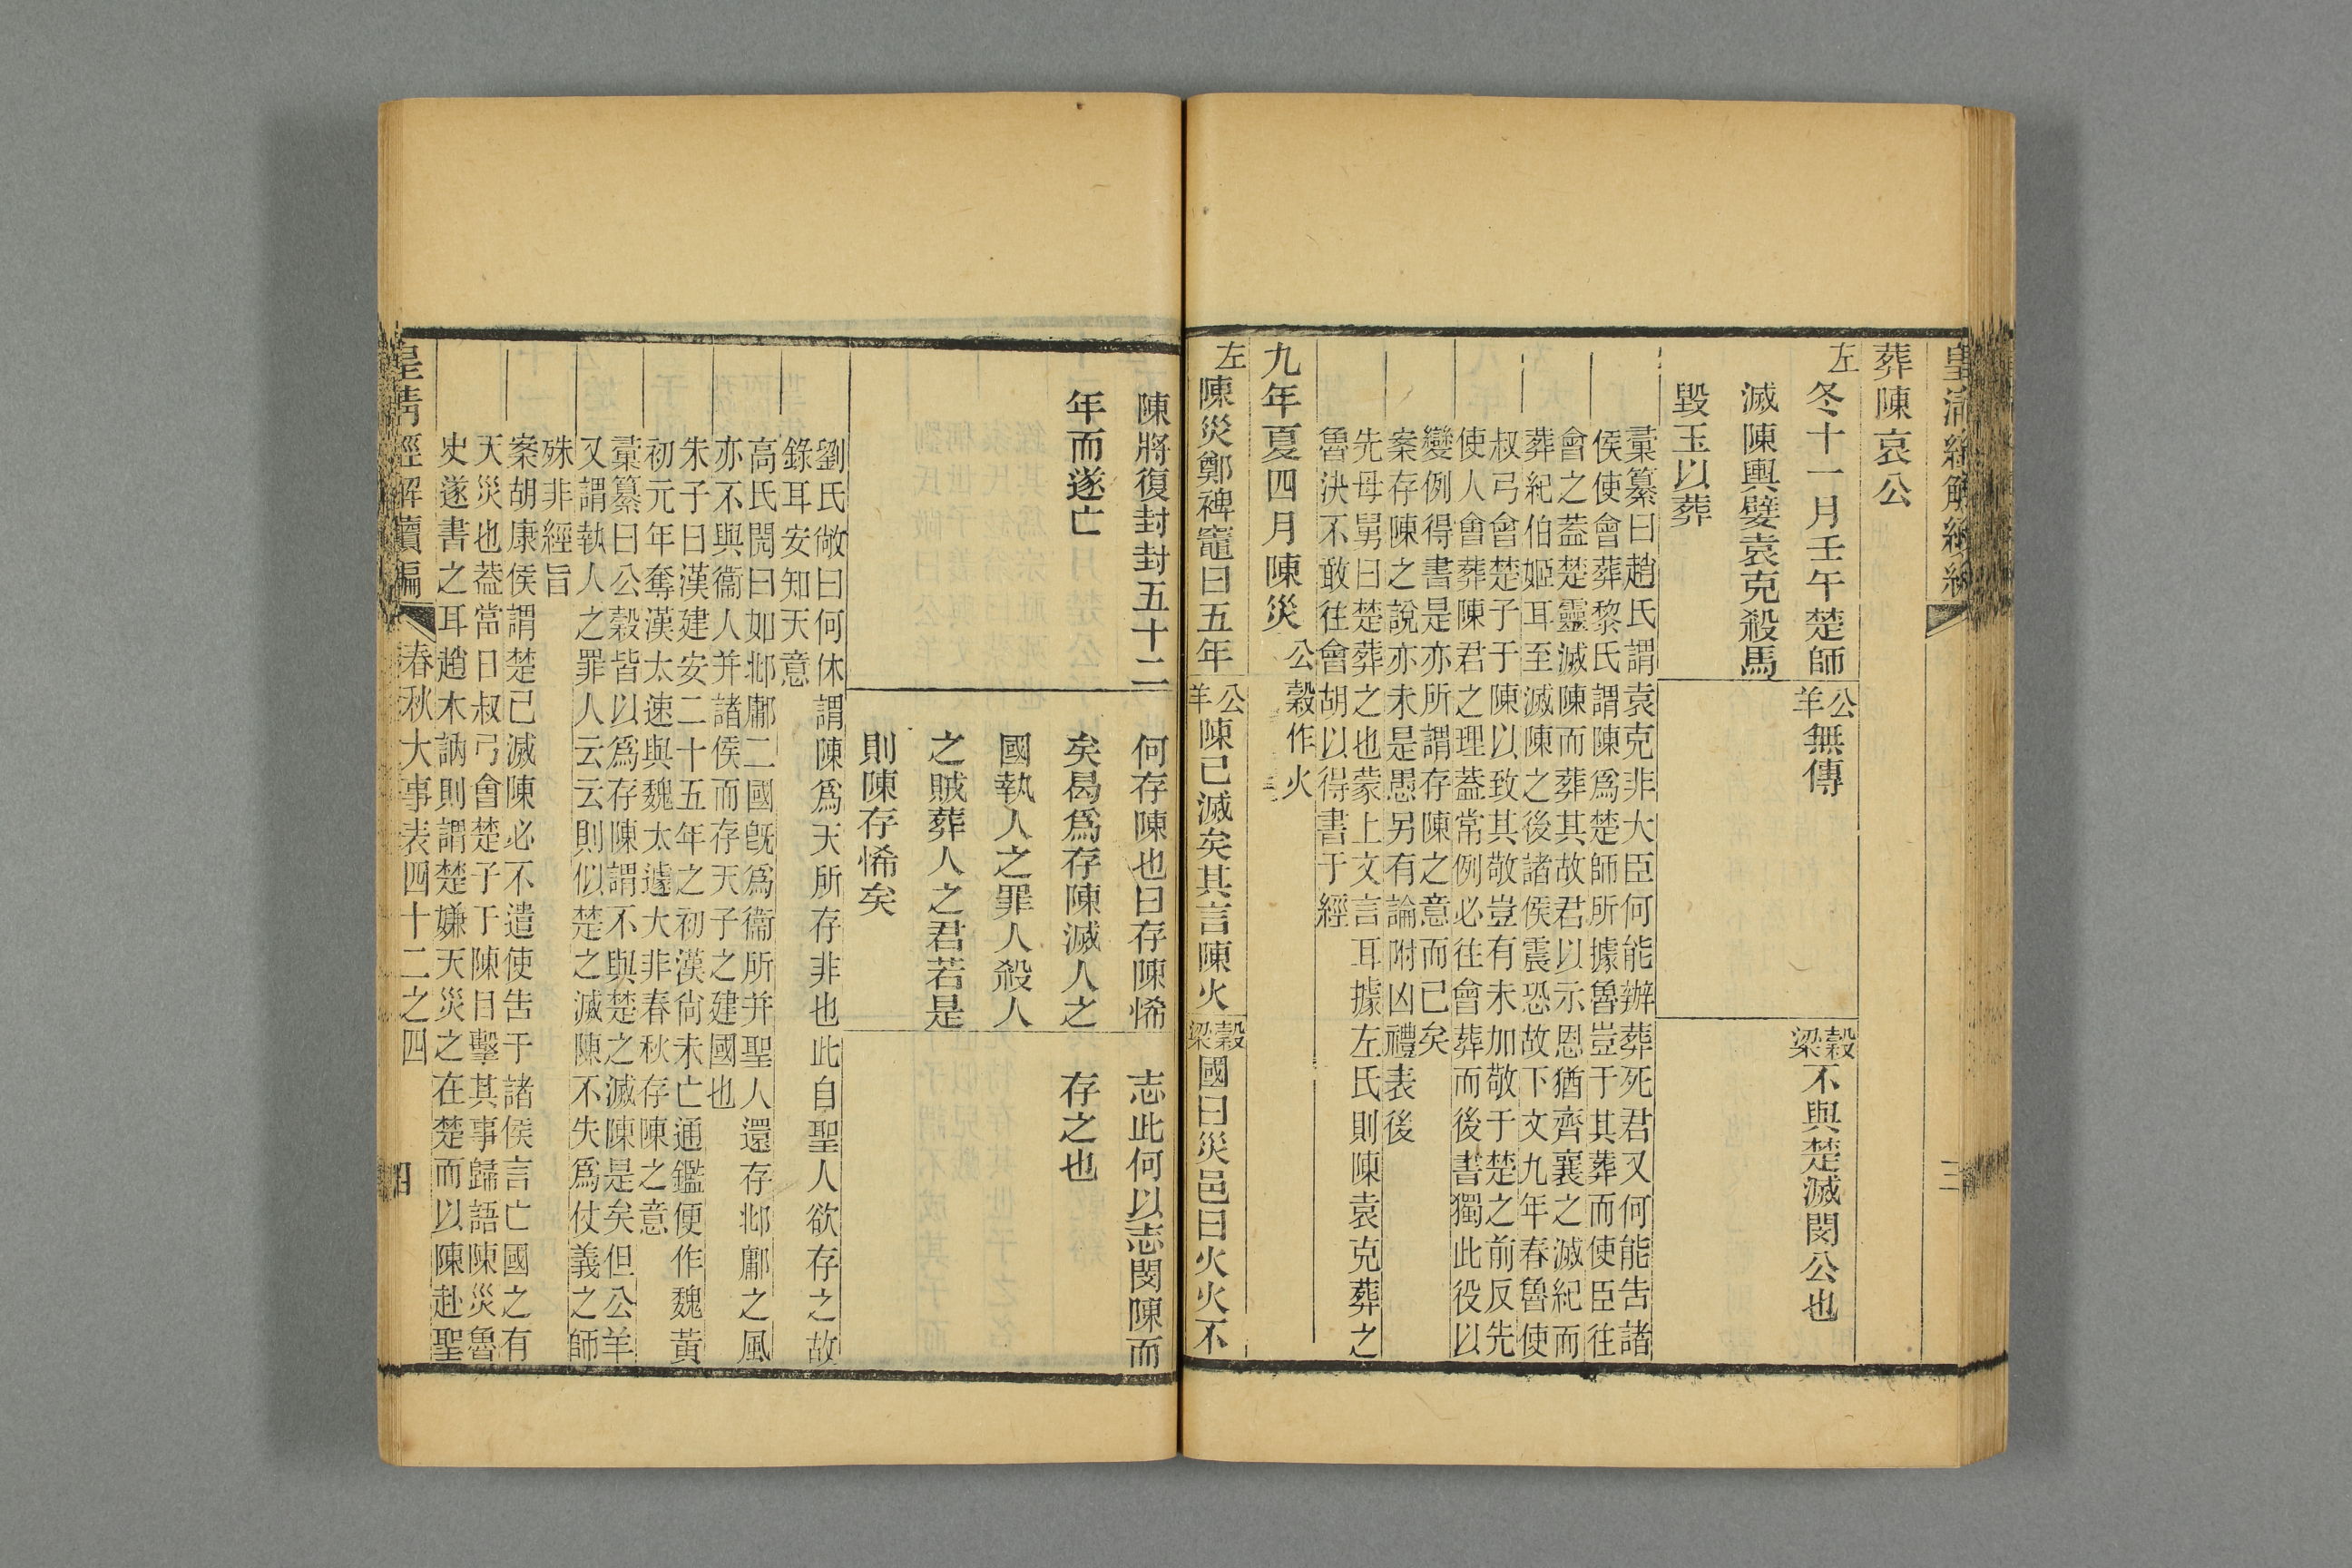 皇清經解續編
三
葬陳哀公
左 冬十一月壬午楚師
滅陳輿嬖袁克殺馬
毀玉以葬
公羊 無傳
穀梁 不與楚滅閔公也
彚纂曰趙氏謂袁克非大臣何能辦葬死君又何能告諸
侯使會葬黎氏謂陳爲楚師所據魯豈于其葬而使臣往
會之葢楚靈滅陳而葬其故君以示恩猶齊襄之滅紀而
葬紀伯姬耳至滅陳之後諸侯震恐故下文九年春魯使
叔弓會楚子于陳以致其敬豈有未加敬于楚之前反先
使人會葬陳君之理葢常例必往會葬而後書獨此役以
變例得書是亦所謂存陳之意而已矣
案存陳之說亦未是愚另有論附凶禮表後
先母舅曰楚葬之也蒙上文言耳據左氏則陳袁克葬之
魯決不敢往會胡以得書于經
九年夏四月陳災 公穀作火
左 陳災鄭裨竈曰五年
公羊 陳已滅矣其言陳火
穀梁 國曰災邑曰火火不
陳將復封封五十二
年而遂亡
何存陳也曰存陳悕
矣曷爲存陳滅人之
國執人之罪人殺人
之賊葬人之君若是
則陳存悕矣
志此何以志閔陳而
存之也
劉氏敞曰何休謂陳爲天所存非也此自聖人欲存之故
錄耳安知天意
高氏閌曰如邶鄘二國旣爲衞所并聖人還存邶鄘之風
亦不與衞人并諸侯而存天子之建國也
朱子曰漢建安二十五年之初漢尙未亡通鑑便作魏黃
初元年奪漢太速與魏太遽大非春秋存陳之意
彚纂曰公穀皆以爲存陳謂不與楚之滅陳是矣但公羊
又謂執人之罪人云云則似楚之滅陳不失爲仗義之師
殊非經旨
案胡康侯謂楚已滅陳必不遣使告于諸侯言亡國之有
天災也葢當日叔弓會楚子于陳目擊其事歸語陳災魯
史遂書之耳趙木訥則謂楚嫌天災之在楚而以陳赴聖
皇清經解續編
春秋大事表四十二之四
四